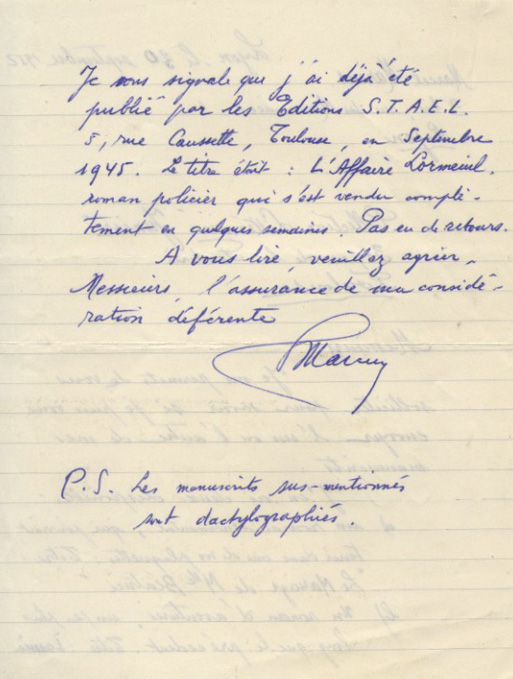 Je vous signale que j'ai déjà été
publié par les Editions S.T.A.E.L.
5, rue Caussette, Toulouse, en Septembre
1945. Le titre était : L'Affaire Lormeuil.
roman policier qui s'est vendu complè-
tement en quelques semaines. Pas eu de retours.
A vous lire, veuillez agréer,
Messieurs, l'assurance de ma considé-
ration déférente
P.S. Les manuscrits sus-mentionnés
sont dactylographiés.